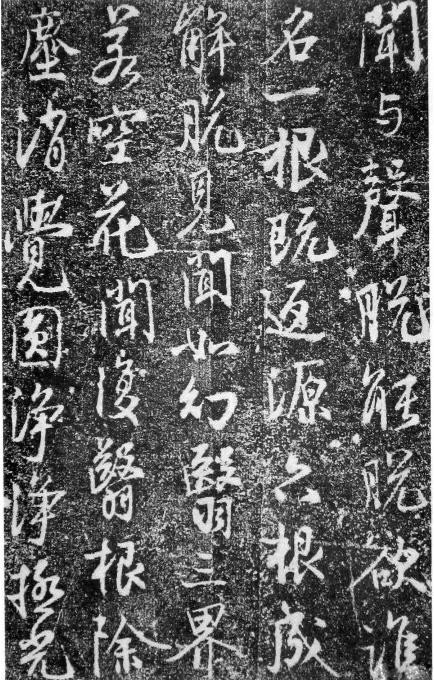 聞与聲脱能脱欲誰
名一根既返源六根成
解脱見聞如幻翳三界
若空花聞復翳根除
塵消覺圓淨淨極光